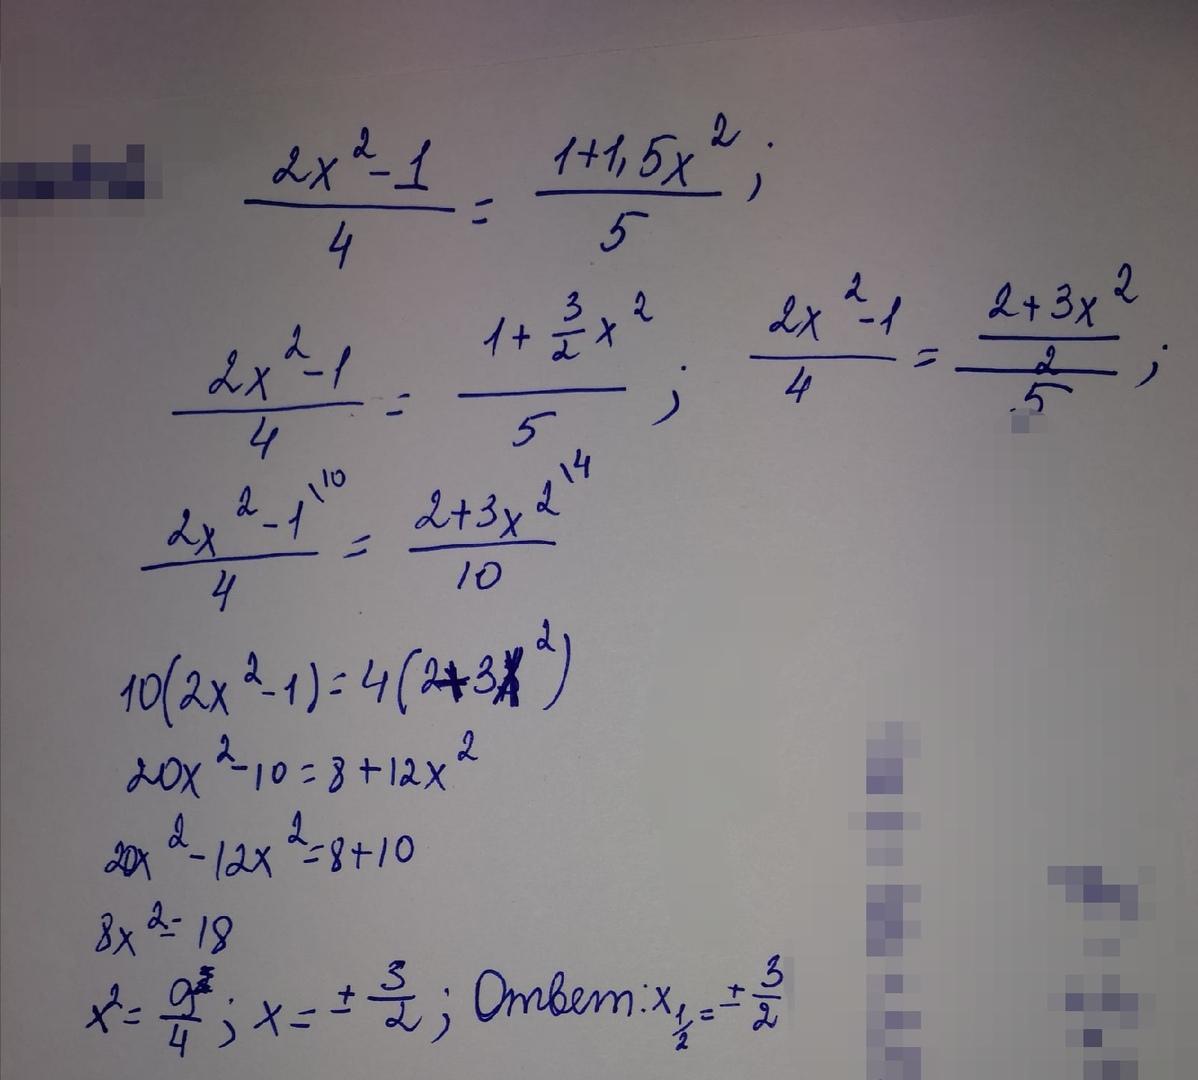 (2x² - 1)/4 = (1 + 1,5x²)/5 ;
(2x² - 1)/4 = (1 + 3/2 x²)/5 ; (2x² - 1)/4 = ((2 + 3x²)/2)/5 ;
(2x² - 1\10)/4 = (2 + 3x²\4)/10
10(2x² - 1) = 4(2 + 3x²)
20x² - 10 = 8 + 12x²
20x² - 12x² = 8 + 10
8x² = 18
x² = 9/4 ; x = ± 3/2 ; Ответ: x₁/₂ = ± 3/2